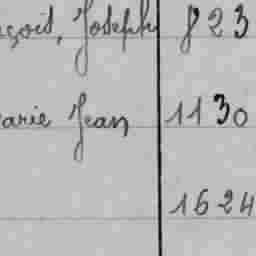 ançois, Joseph 823
arie Jean 1130
1624